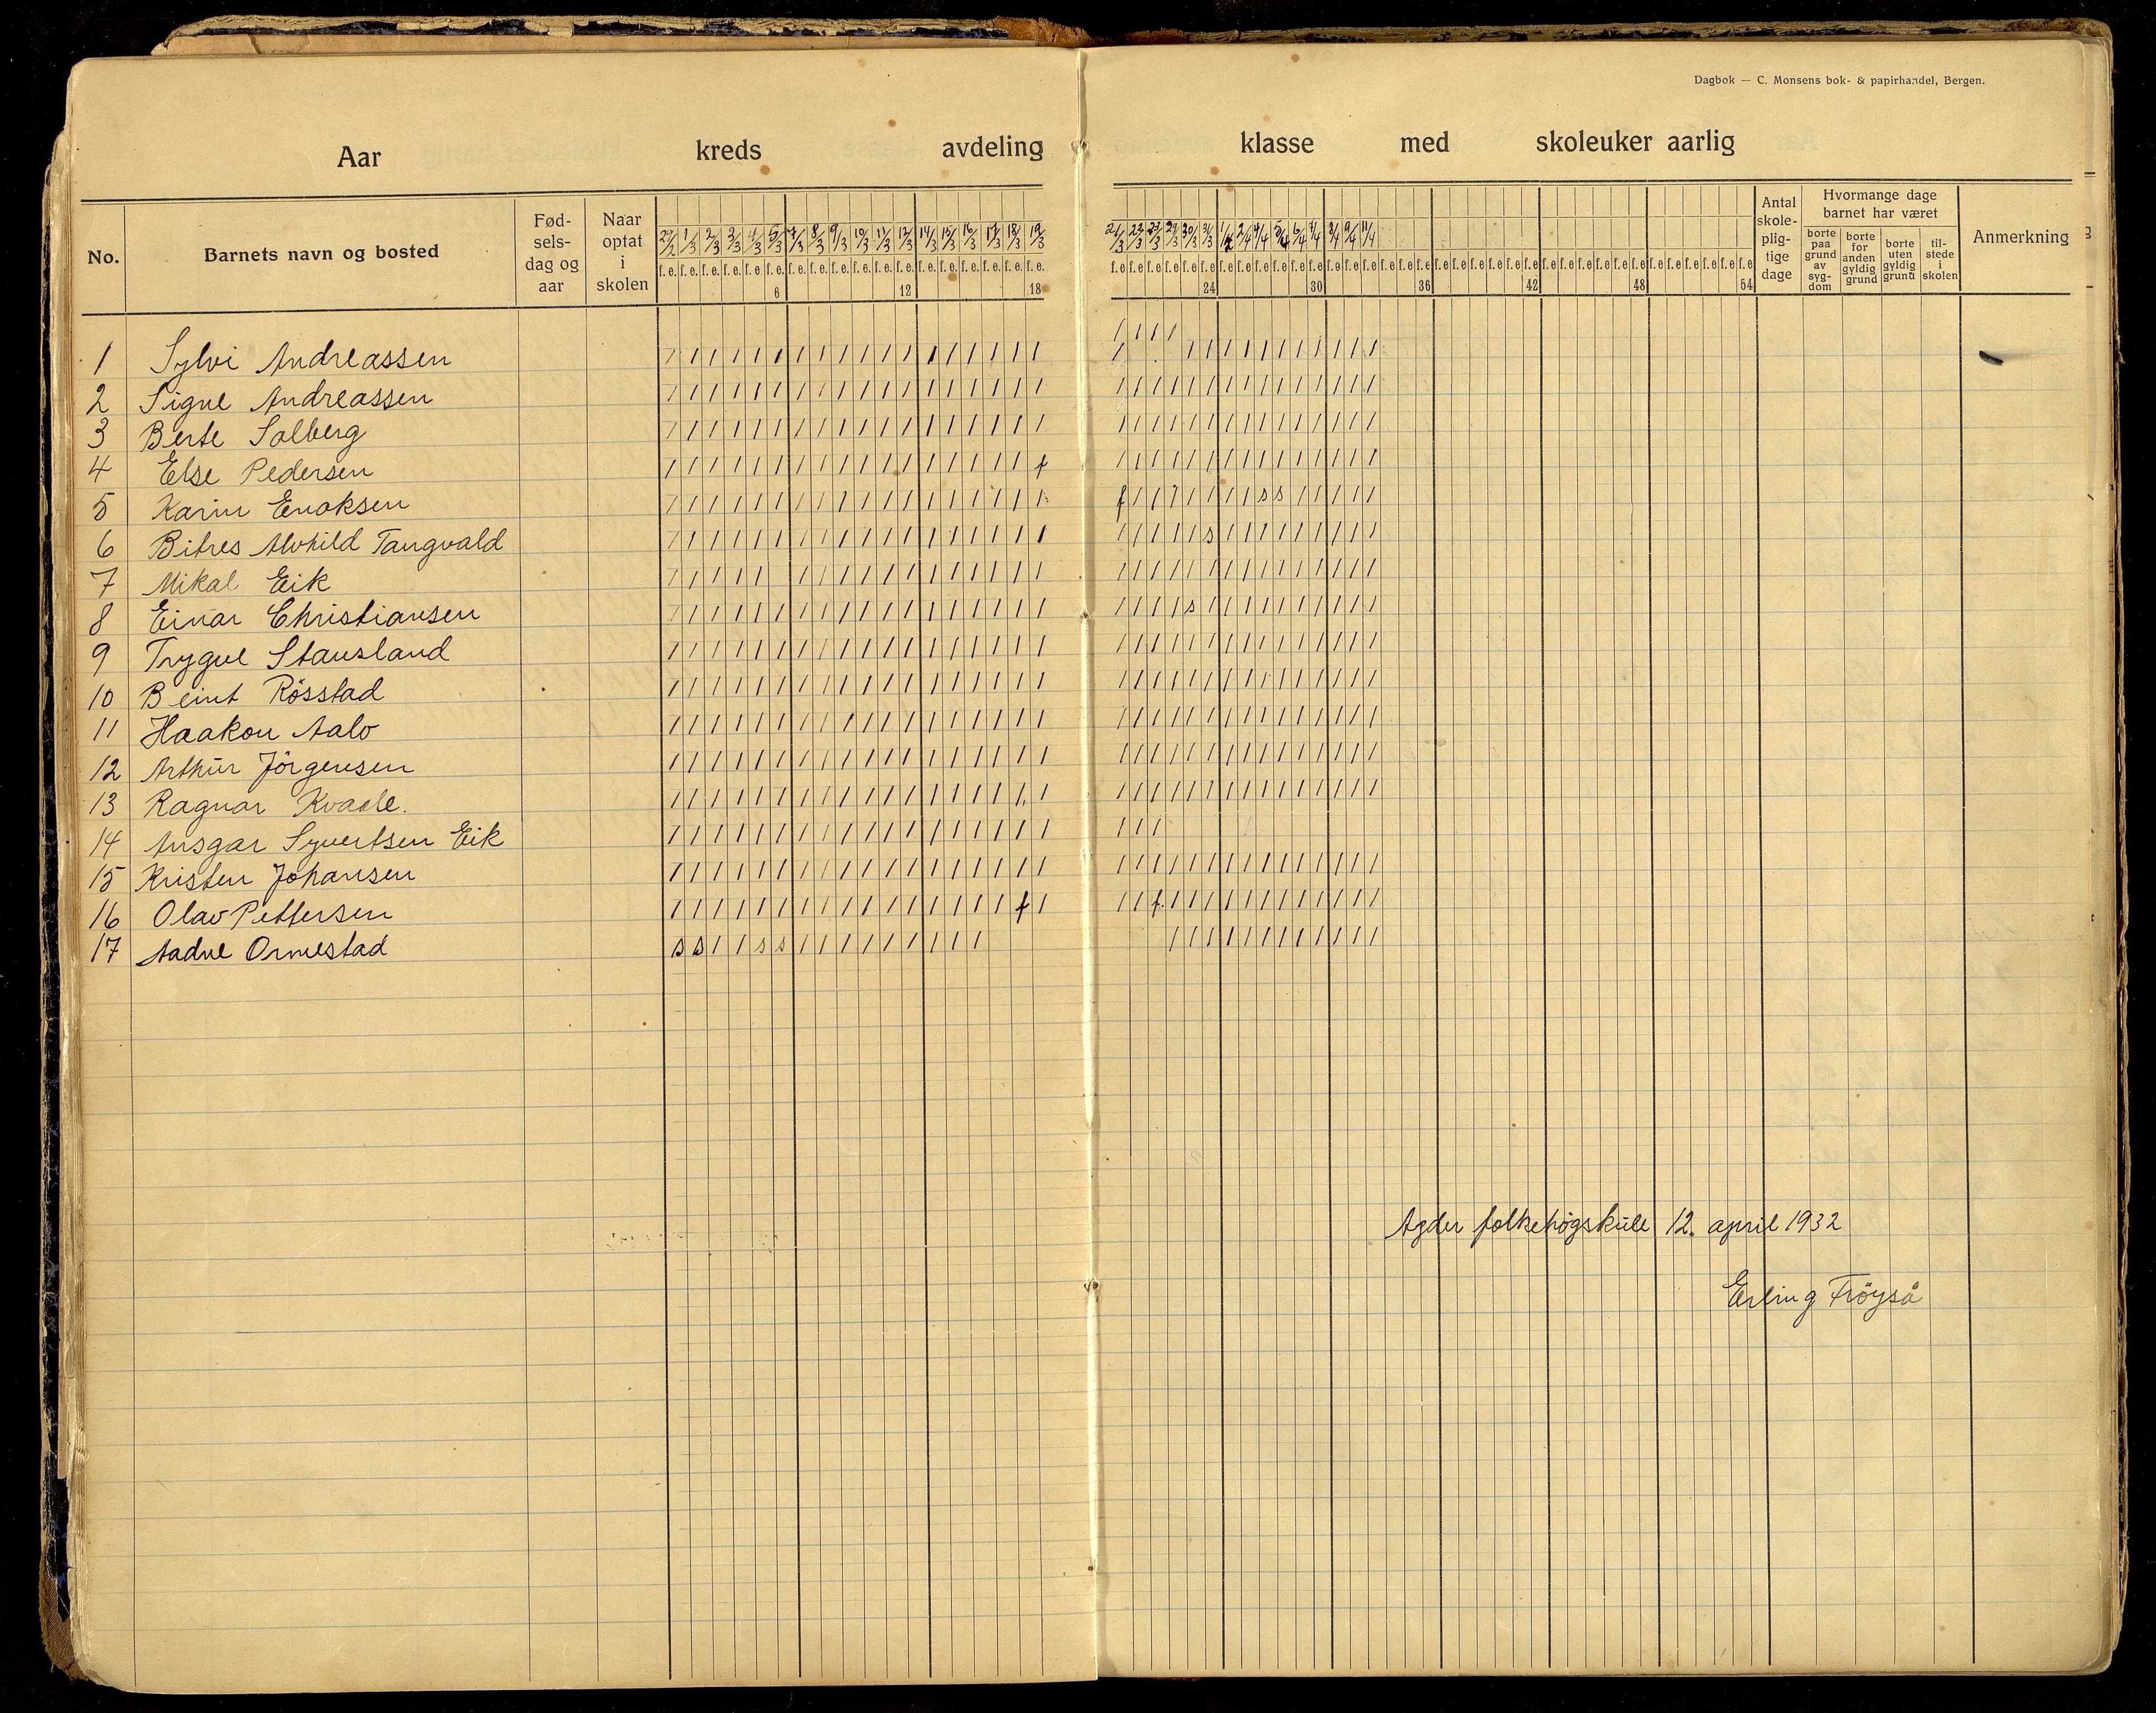 Dagbok — C. Monsens bok- & papirhandel, Bergen.
Aar kreds avdeling klasse med skoleuker aarlig
No.
Barnets navn og bosted
Fød-
sels-
dag og
aar
Naar
optat
i
skolen
29/2 1/3 2/3 3/3 4/3 5/3 7/3 8/3 9/3 10/3 11/3 12/3 14/3 15/3 16/3 17/3 18/3 19/3
f. e. f. e. f. e. f. e. f. e. f. e. f. e. f. e. f. e. f. e. f. e. f. e. f. e. f. e. f. e. f. e. f. e. f. e.
6 12 18
21/3 22/3 23/3 29/3 30/3 31/3 1/4 2/4 4/4 5/4 6/4 7/4 8/4 9/4 11/4
24 30 36 42 48 54
Antal
skole-
plig-
tige
dage
Hvormange dage
barnet har været
borte
paa
grund
av
syg-
dom
borte
for
anden
gyldig
grund
borte
uten
gyldig
grund
til-
stede
i
skolen
Anmerkning
1 Sylvi Andreassen
2 Signe Andreassen
3 Berte Solberg
4 Else Pedersen f
5 Karin Enoksen f s s
6 Bitres Alvhild Tangvald s
7 Mikal Eik
8 Einar Christiansen s
9 Trygve Stausland
10 Beint Rösstad
11 Haakon Aalo
12 Arthur Jörgensen
13 Ragnar Kvaale.
14 Ansgar Syvertsen Eik
15 Kristen Johansen
16 Olav Pettersen f f
17 Aadne Ormestad s s s s
Agder folkehøgskule 12. april 1932
Erling Tröyså